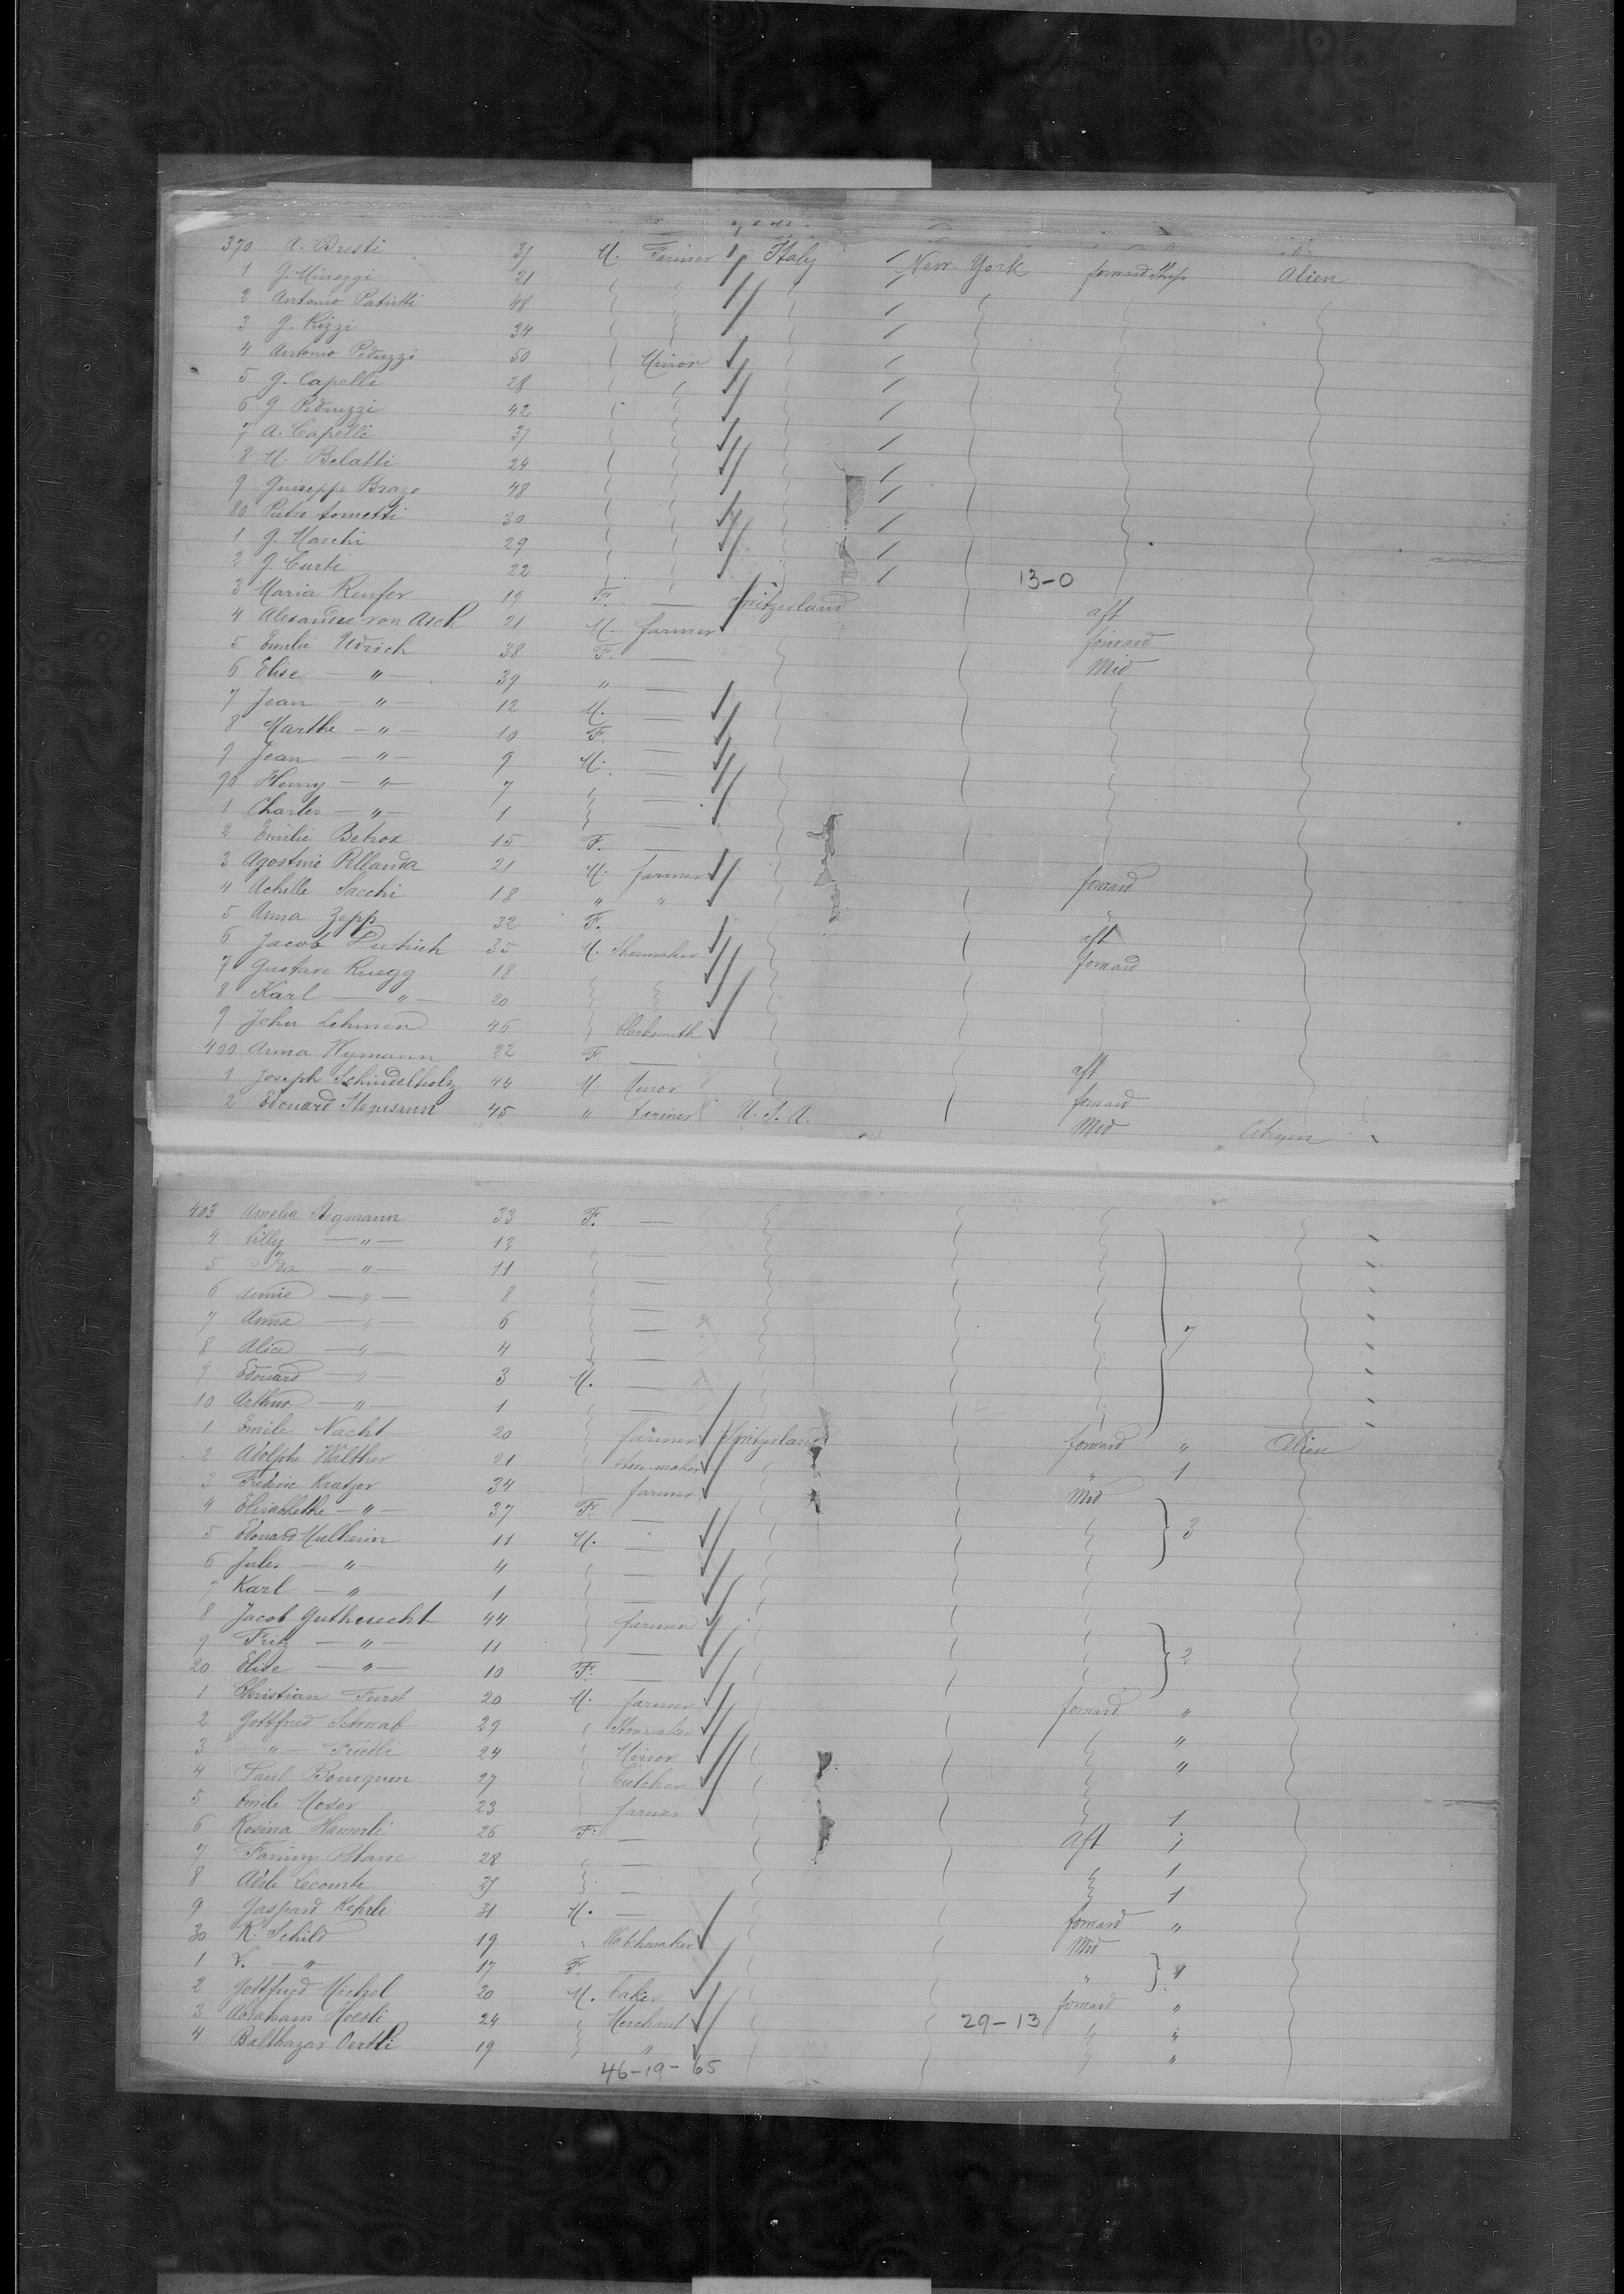 370 A. Bresti 31 M. Farmer Italy New York forward Ship Alien
1 G. Minoggi 21
2 Antonio Patritti 48
3 G. Rizzi 34
4 Antonio Peduzzi 50 Minor
5 G. Capelli 28
6 G. Peduzzi 42
7 A. Capelli 37
8 M. Belatti 24
9 Guiseppe Brago 48
80 Pietro 30
1 G. Marchi 29
2 G. Curti 22
13-0
3 Maria Renfer 19 F. — Switzerland aft
4 Alexandre von Asch 21 M. farmer forward
5 Emilie Udrich 38 F. — Mid
6 Elise — " — 39 " —
7 Jean — " — 12 M. —
8 Marthe — " — 10 F. —
9 Jean — " — 9 M. —
90 Henry — " — 7 —
1 Charles — " — 1 —
2 Emilie Betrox 15 F. —
3 Agostino Pellanda 21 M. farmer forward
4 Achille Sacchi 18 " " "
5 Anna Zepp 32 F. aft
6 Jacob Dietrich 35 M. Shoemaker forward
7 Gustave Ruegg 18
8 Karl — " — 20
9 John Lehman 46 blacksmith
400 Anna Wymann 22 F — aft
1 Joseph Schindelholz 44 M Minor forward
2 Edouard Stegmann 45 " Farmer U. S. A. Mid Citizen
403 Amelia Stegmann 33 F. —
4 Lilly — " — 12 —
5 Ida — " — 11 —
6 Annie — " — 8 —
7 Anna — " — 6 — 7
8 Alice — " — 4 —
9 Edouard — " — 3 M. —
10 Arthur — " — 1 —
1 Emile Nacht 20 farmer Switzerland forward " Alien
2 Adolphe Walther 21 " 1
3 Frederic Kratzer 34 farmer Mid
4 Elisabethe — " — 37 F. — 3
5 Edouard Mulheim 11 M. —
6 Jules — " — 4 —
7 Karl — " — 1 —
8 Jacob Guthnecht 44 farmer
9 Fritz — " — 11 — 2
20 Elise — " — 10 F. —
1 Christian Furst 20 M. farmer forward "
2 Gottfried Schwab 29 "
3 — " — Friedli 24 Minor "
4 Paul Bourquin 27 butcher
5 Emile Moser 23 farmer 1
6 Rosina Hamerli 26 F. — Aft 1
7 Fanny Blanc 28 — 1
8 Adele Lecomte 21 — 1
9 Gaspard Kehrli 31 M. — forward "
30 R. Schild 19 Watchmaker Mid
1 — " — 17 F. — " 1
2 Gottfried Michel 20 M. baker forward "
3 Abraham Hoesli 24 Merchant 29-13 "
4 Balthazar Oertli 19 " "
46-19-65